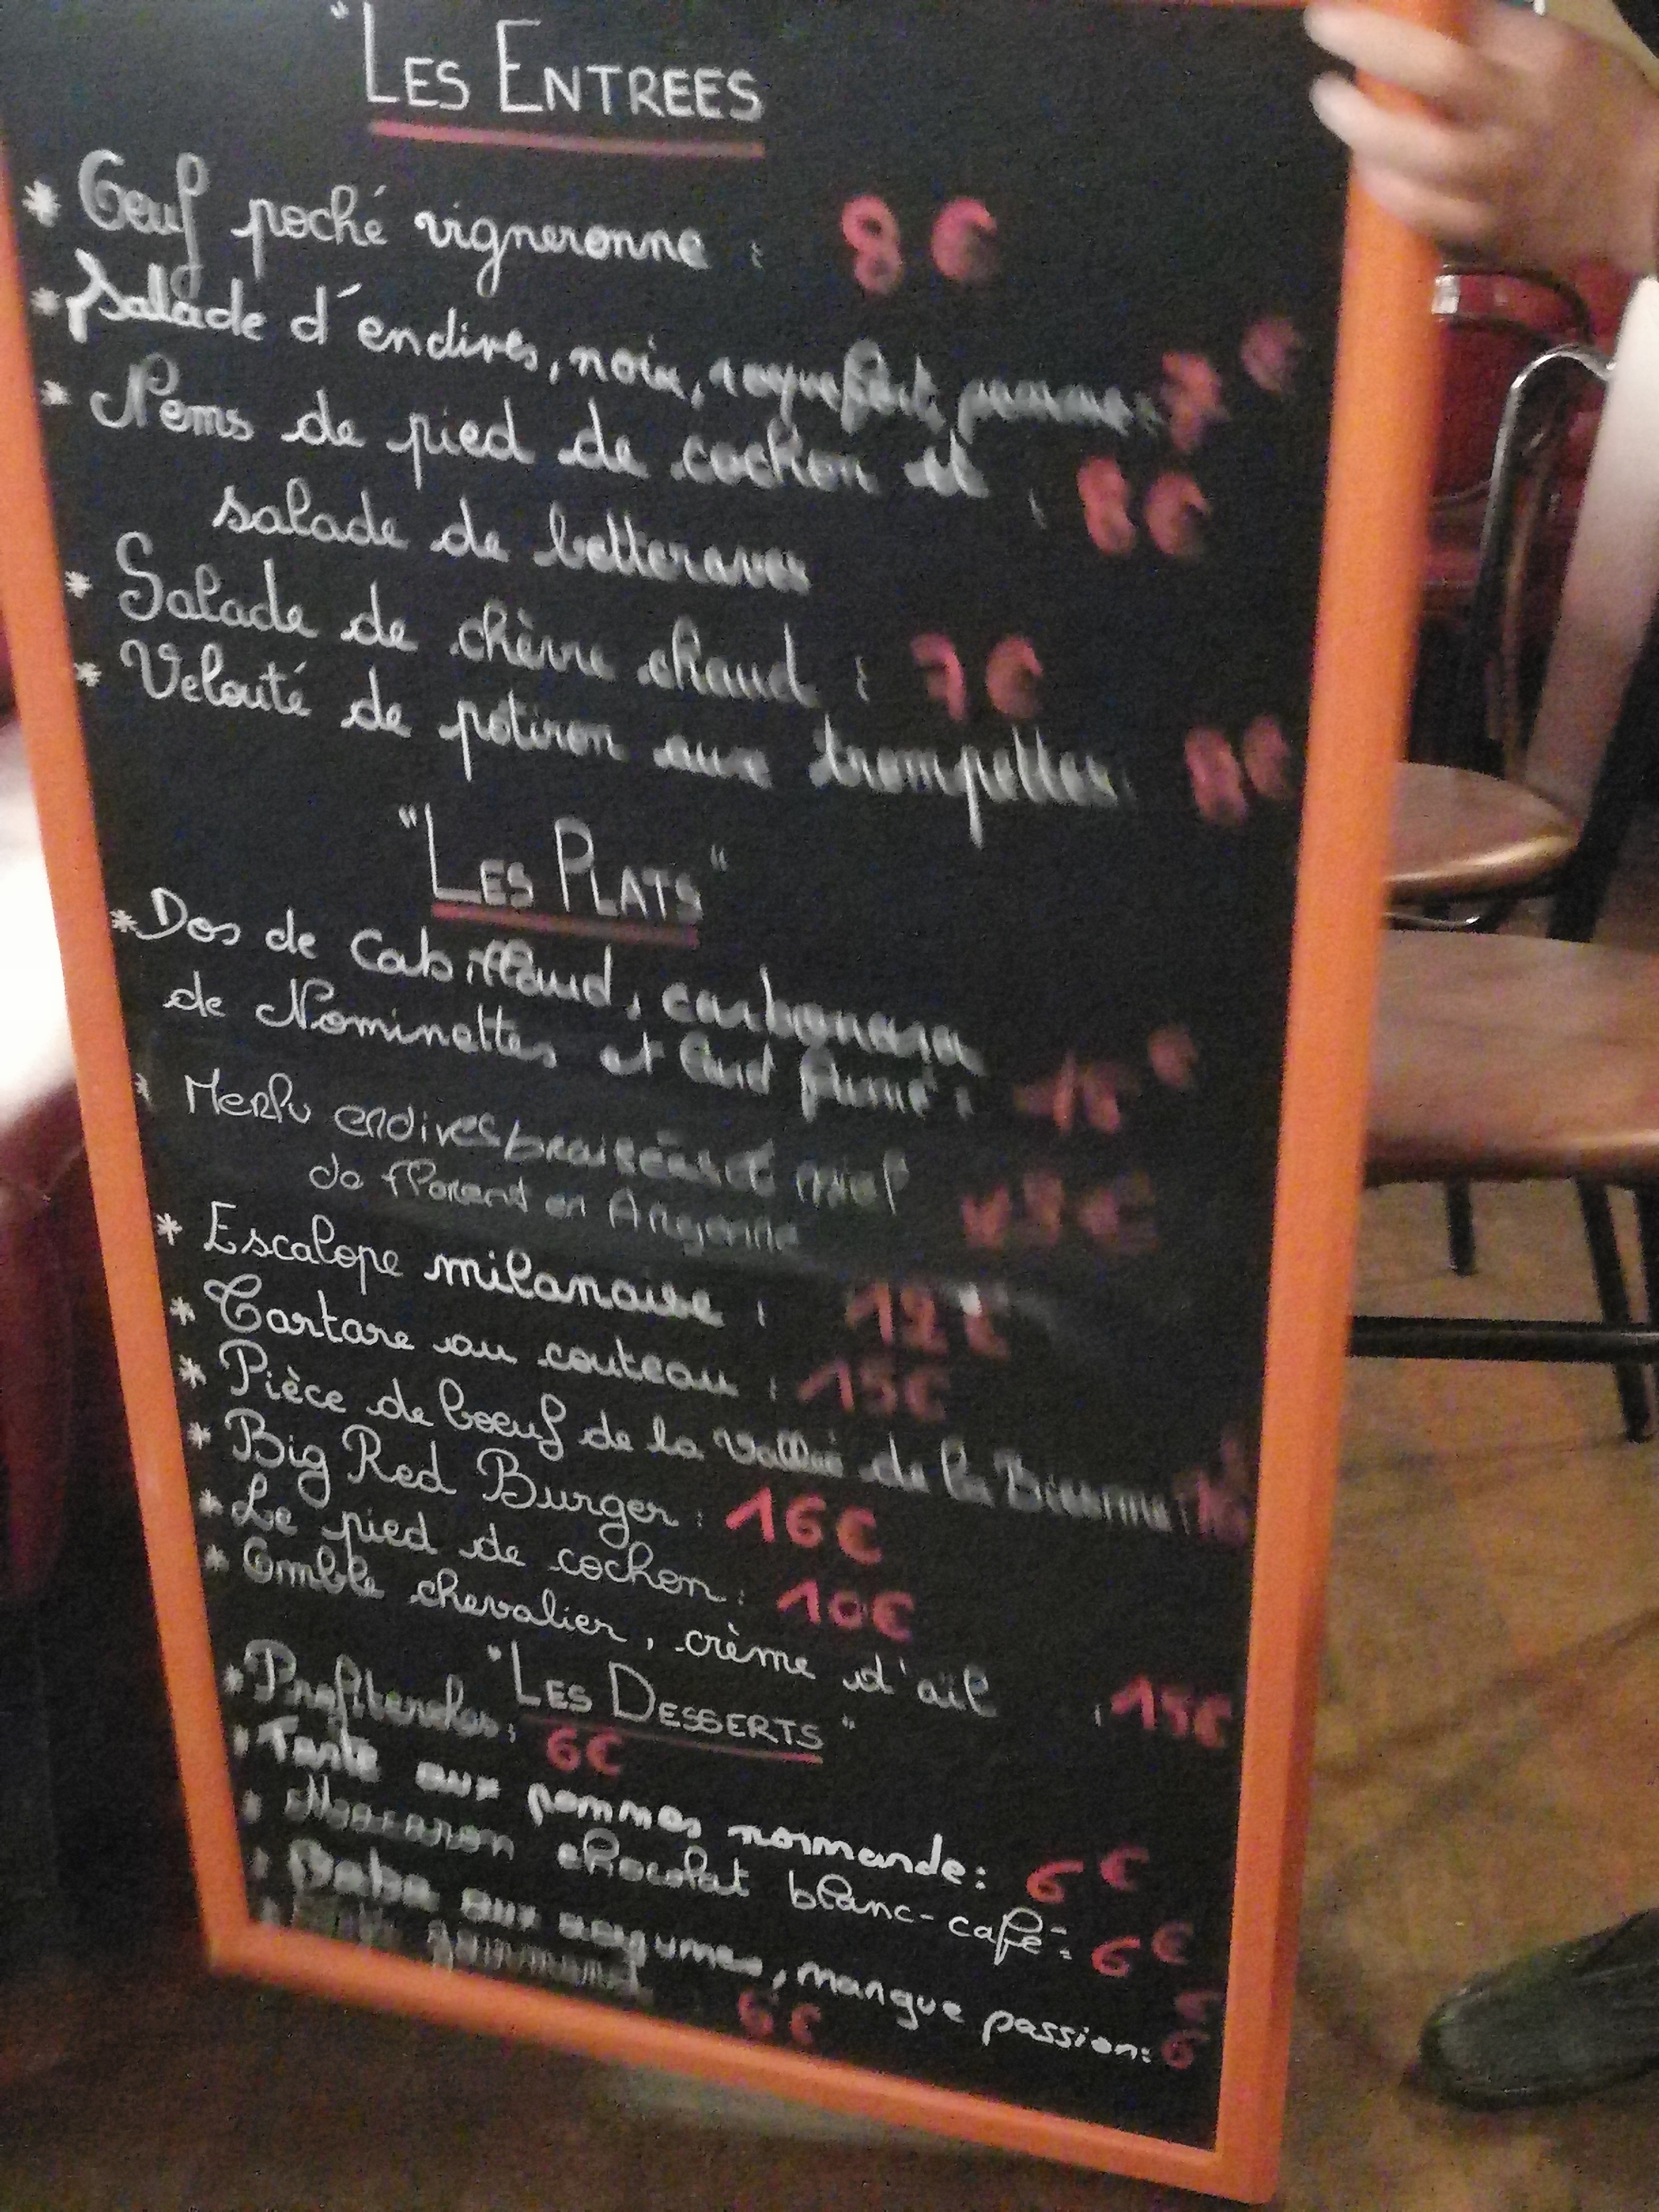 "LES ENTREES
* Oeuf poché vigneronne : 8 €
* Salade d'endives, noix, roquefort, pommes :
* Nems de pied de cochon et
salade de betteraves : 8 €
* Salade de chèvre chaud : 7 €
* Velouté de potiron aux trompettes : 8 €
"LES PLATS"
* Dos de Cabillaud, carbonara
de Nominettes et lard fumé :
* Merlu endives braisées et miel
de florent en Argonne
* Escalope milanaise : 12 €
* Tartare au couteau : 15€
* Pièce de boeuf de la Vallée de la Biesme :
* Big Red Burger : 16€
* Le pied de cochon : 10€
* Omble chevalier, crème d'ail : 15€
"LES DESSERTS"
* Profiteroles : 6€
* Tarte aux pommes normande : 6 €
* Macaron chocolat blanc-café : 6 €
* Baba aux agrumes, mangue passion : 6 €
gourmand 6 €